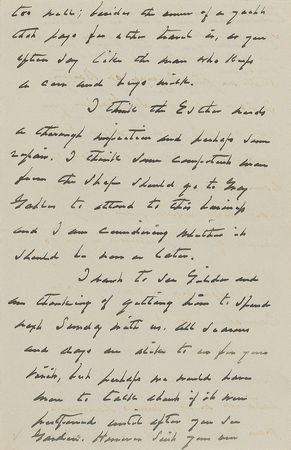 too well; besides the owner of a yacht
that pays for other travel is, as you
often say like the man who keeps
a cow and buys milk.
I think the Esther needs
a thorough inspection and perhaps some
repairs. I think some competent man
from the shops should go to Gray
Gables to attend to this
and I am considering whether it
should be now or later.
I want to see Gilder and
am thinking of getting him to spend
next Sunday with us. All seasons
and days are alike to us for your
visits, but perhaps we would have
more to talk about if it were
postponed until after you see
However I wish you